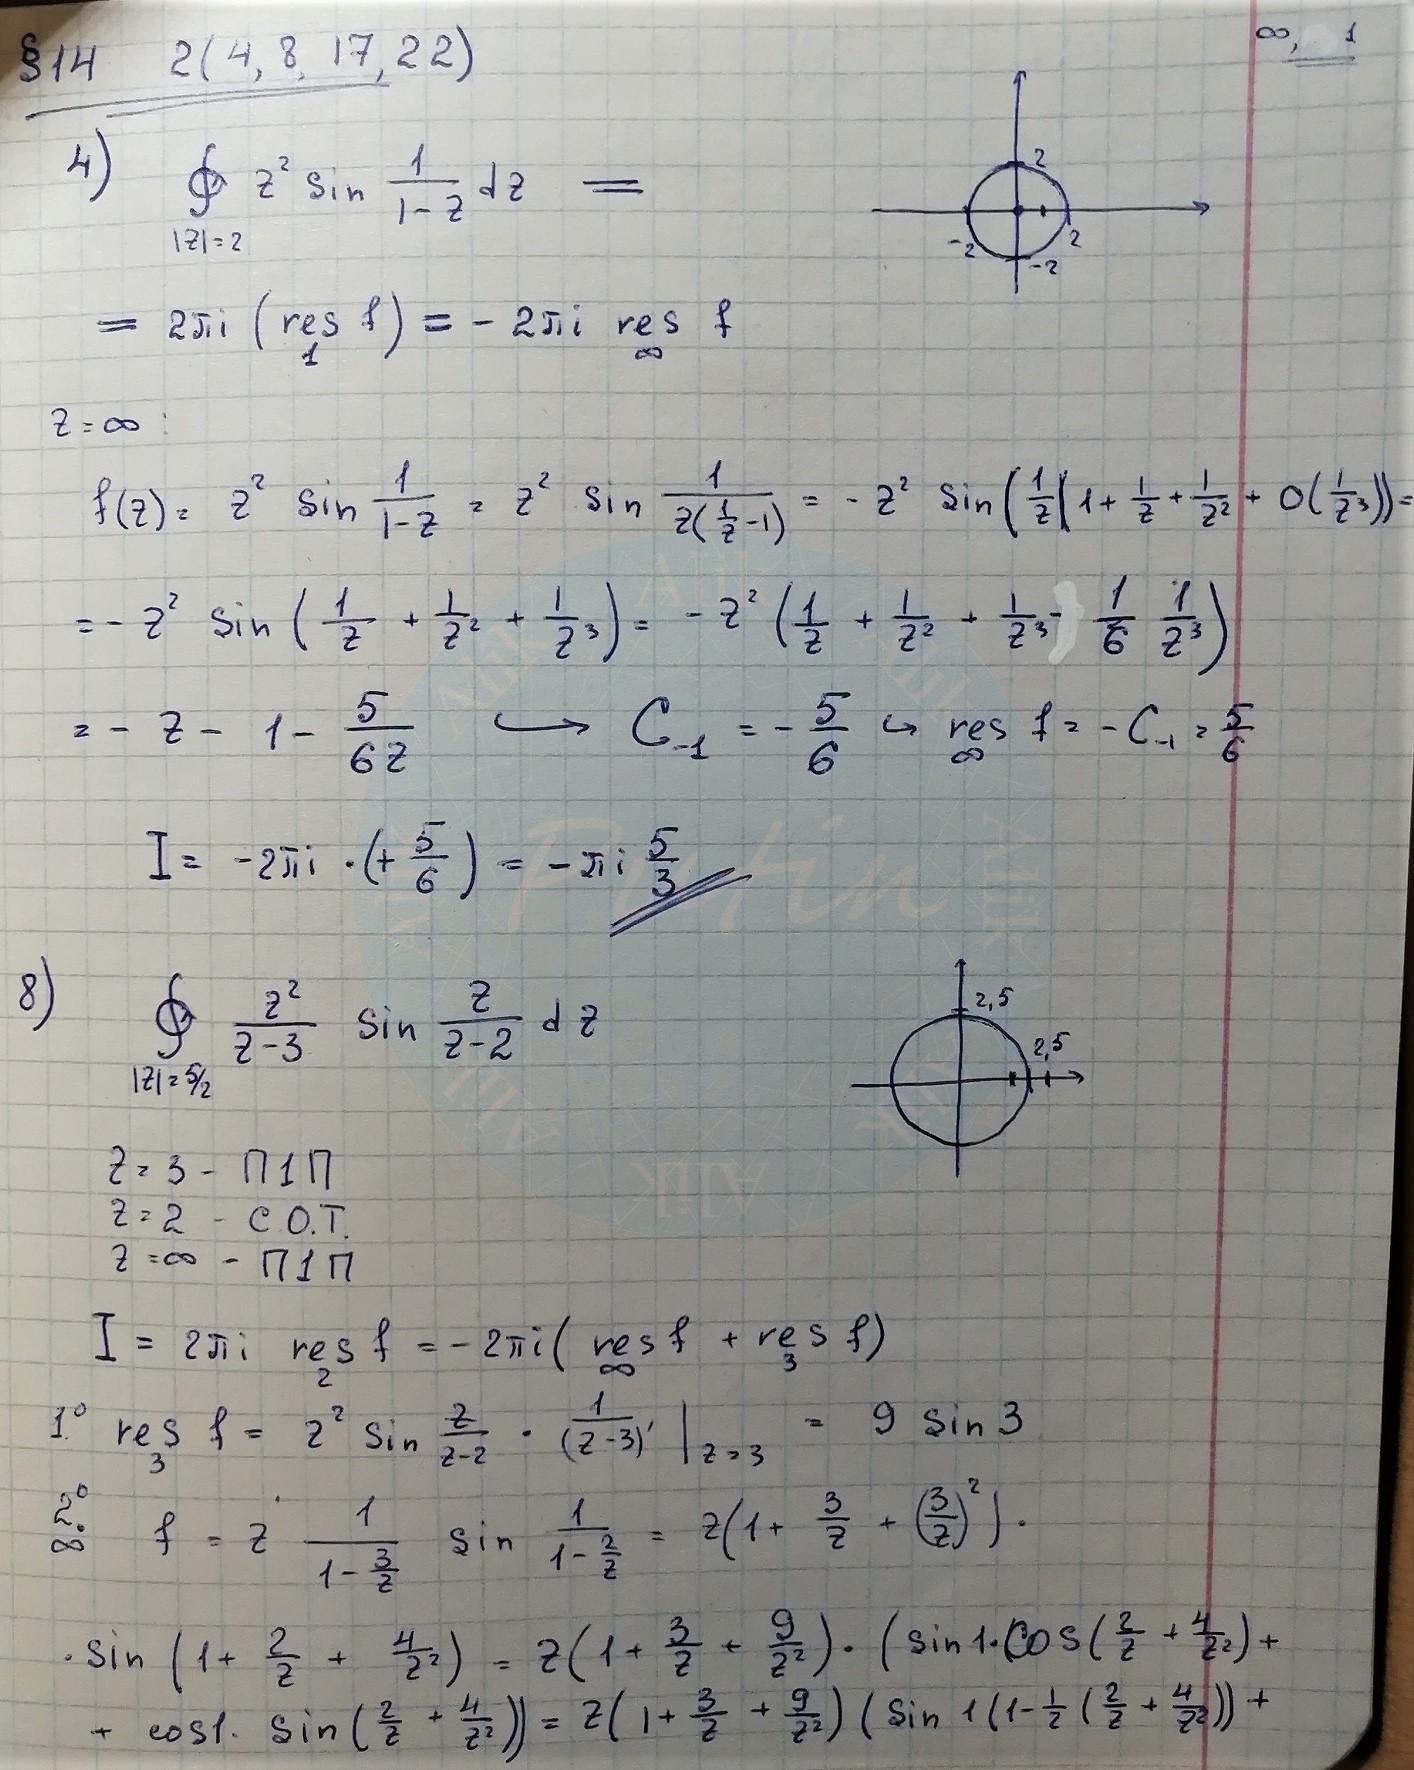 §14 2(4, 8, 17, 22)
∞, 1
4) ∮ z² sin 1/(1-z) dz =
|z|=2
2
-2 2
-2
= 2πi (res f) = -2πi res f
1 ∞
z=∞:
f(z)= z² sin 1/(1-z) = z² sin 1/(z(1/z-1)) = -z² sin(1/z(1+1/z+1/z²+O(1/z³))=
=-z² sin(1/z + 1/z² + 1/z³)= -z²(1/z + 1/z² + 1/z³ - 1/6 1/z³)
= - z - 1 - 5/6z ↪ C₋₁ = -5/6 ↪ res f = -C₋₁ = 5/6
∞
I = -2πi ·(+5/6) = -πi 5/3
8) ∮ z²/(z-3) sin z/(z-2) dz
|z|=5/2
2,5
2,5
z=3 - П1П
z=2 - С.О.Т.
z=∞ - П1П
I = 2πi res f = -2πi( res f + res f)
2 ∞ 3
1.° res f = z² sin z/(z-2) · 1/(z-3)' |z=3 = 9 sin 3
3
2.° f = z 1/(1-3/z) sin 1/(1-2/z) = z(1+ 3/z + (3/z)²)·
∞
·sin(1+ 2/z + 4/z²) = z(1+3/z + 9/z²)·(sin1·cos(2/z + 4/z²)+
+ cos1· sin(2/z + 4/z²)) = z(1+3/z + 9/z²)(sin 1(1-1/2(2/z+4/z²))+
Alik
Putin